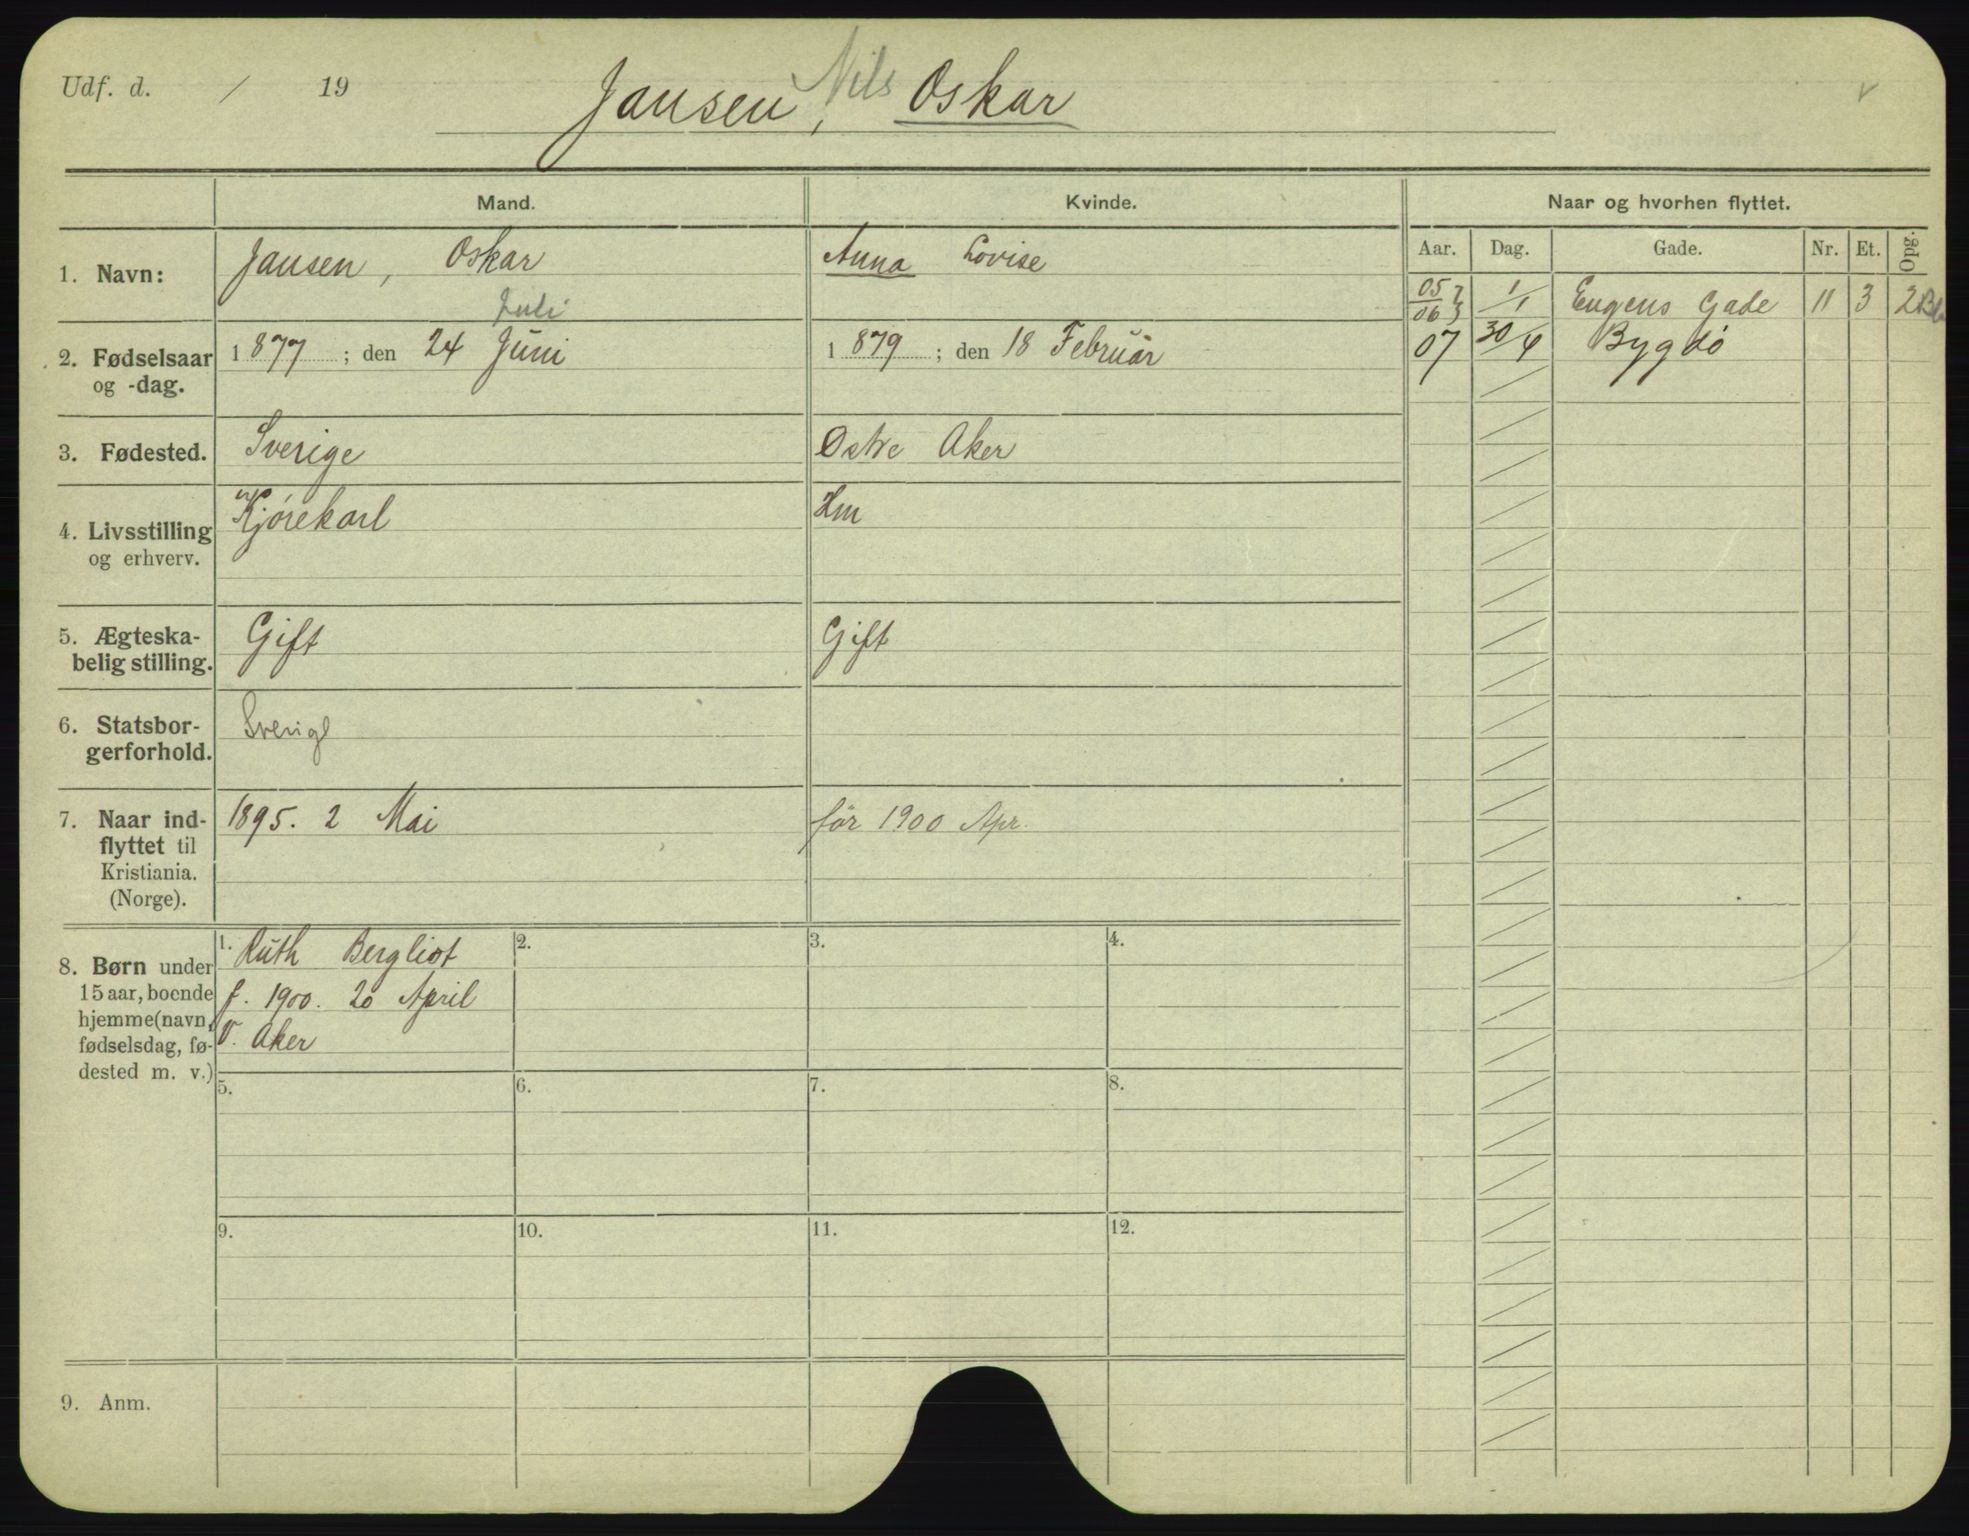 Udf. d. / 19
Jansen, Nils Oskar
Mand.
Kvinde.
Naar og hvorhen flyttet.
Aar. Dag. Gade. Nr. Et. Opg.
1. Navn:
Jansen, Oskar
Anna Lovise
05 06 } 1/1 Eugens Gade 11 3 2
Juli
2. Fødselsaar
og -dag.
1877; den 24 Juni
1879; den 18 Februar
07 30/4 Bygdö
3. Fødested.
Sverige
Østre Aker
4. Livsstilling
og erhverv.
Kjørekarl
Hm
5. Ægteska-
belig stilling.
Gift
Gift
6. Statsbor-
gerforhold.
Sverige
7. Naar ind-
flyttet til
Kristiania.
(Norge).
1895. 2 Mai
før 1900 Apr.
8. Børn under
15 aar, boende
hjemme (navn,
fødselsdag, fø-
dested m. v.)
1. Ruth Bergliot
f. 1900. 20 April
V. Aker
2.
3.
4.
5.
6.
7.
8.
9.
10.
11.
12.
9. Anm.